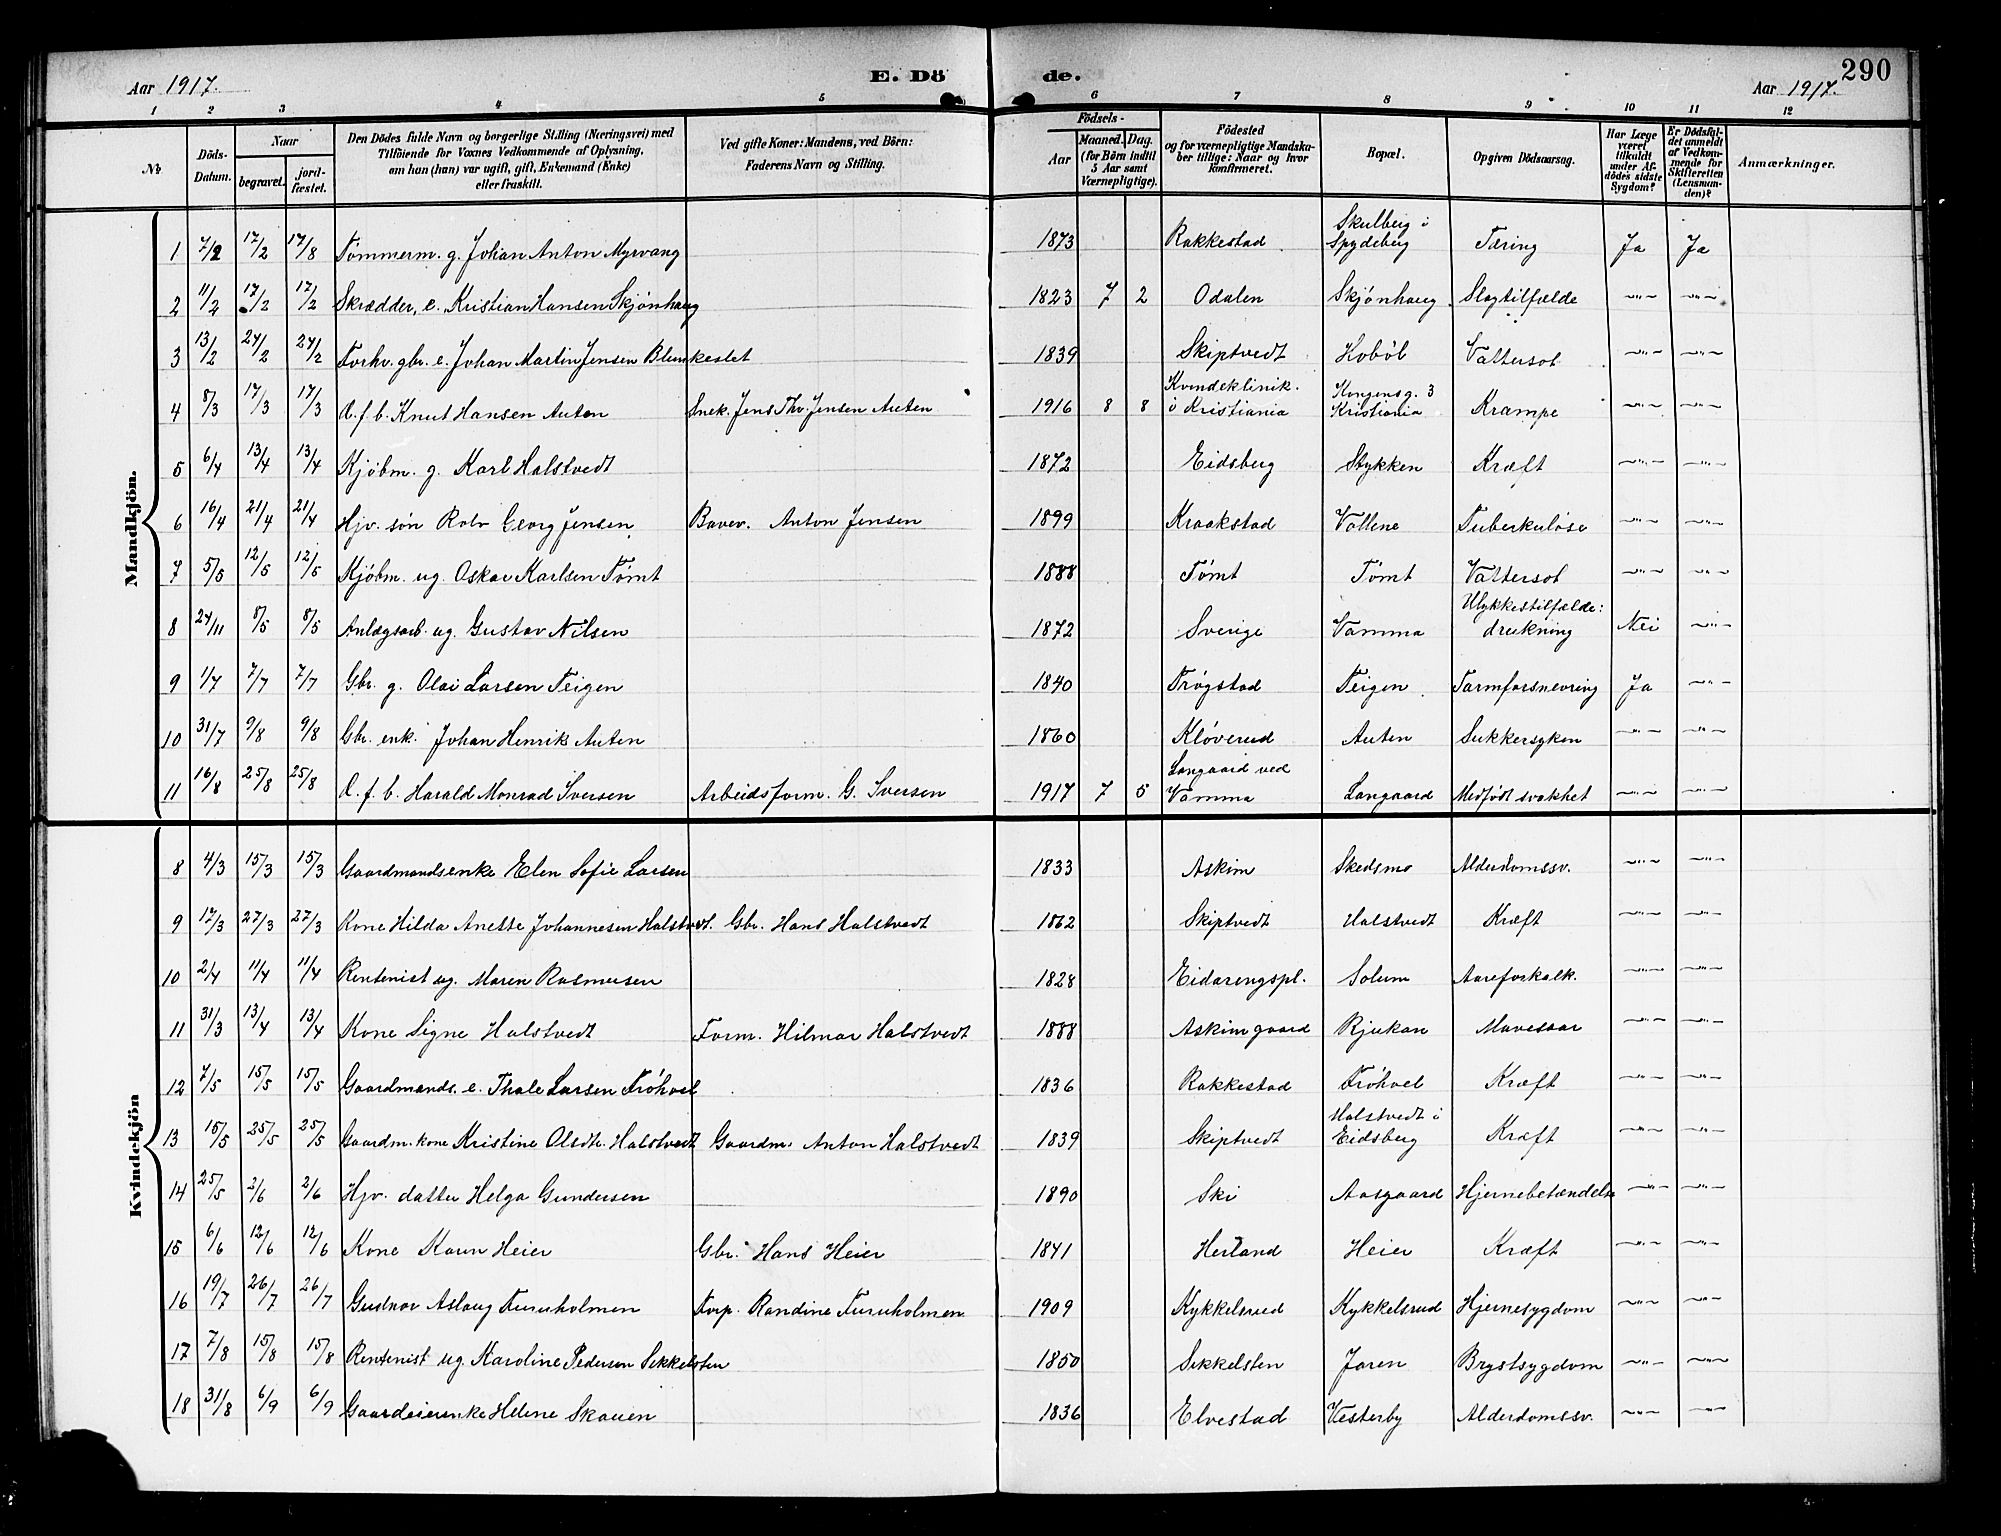 290
Aar 1917. E. Dö de. Aar 1917.
1 2 3 4 5 6 7 8 9 10 11 12
No Döds-Datum. Naar begravet. jord-fæstet. Den Dödes fulde Navn og borgerlige Stilling (Næringsvei) med Tilföiende for Voxnes Vedkommende af Oplysning, om han (hun) var ugift, gift, Enkemand (Enke) eller fraskilt. Ved gifte Koner: Mandens, ved Börn: Faderens Navn og Stilling. Födsels- Aar Maaned. Dag. (for Börn indtil 5 Aar samt Værnepligtige). Födested og for værnepligtige Mandskaber tillige: Naar og hvor konfirmeret. Bopæl. Opgiven Dödsaarsag. Har Læge været tilkaldt under Afdödes sidste Sygdom? Er Dödsfaldet anmeldt af Vedkommende for Skifteretten (Lensmanden)? Anmærkninger.
Mandkjön.
1 7/2 17/2 17/8 Tømmerm. g. Johan Anton Myrvang 1873 Rakkestad Skulberg i Spydeberg Tæring Ja Ja
2 11/2 17/2 17/2 Skrædder, e. Kristian Hansen Skjønhaug 1823 7 2 Odalen Skjønhaug Slagtilfælde -"- -"-
3 13/2 24/2 24/2 Forhv. gbr. e. Johan Martin Jensen 1839 Skiptvedt Hobøl Vattersot -"- -"-
4 8/3 17/3 17/3 U.f.b. Knut Hansen Auten Snek. Jens Thv. Jensen Auten 1916 8 8 Kvindeklinik. i Kristiania Kongensg. 3 Kristiania Krampe -"- -"-
5 6/4 13/4 13/4 Kjøbm. g. Karl Halstvedt 1872 Eidsberg Stykken Kræft -"- -"-
6 16/4 21/4 21/4 Hjv. søn Rolv Georg Jensen. Banev. Anton Jensen 1899 Kraakstad Vollene Tuberkuløse -"- -"-
7 5/5 12/5 12/5 Kjøbm. ug. Oskar Karlsen Tømt 1888 Tømt Tømt Vattersot -"- -"-
8 24/11 8/5 8/5 Anlægsarb. ug. Gustav Nilsen 1872 Sverige Vamma Ulykkestilfælde: drukning Nei -"-
9 1/7 7/7 7/7 Gbr. g. Olai Larsen Teigen 1840 Trøgstad Teigen Tarmforsnevring Ja -"-
10 31/7 9/8 9/8 Gbr. enk. Johan Henrik Auten 1860 Kløverud Auten Sukkersyken -"- -"-
11 16/8 25/8 25/8 U.f.b. Harald Monrad Iversen Arbeidsform. G. Iversen 1917 7 5 Langaard ved Vamma Langaard Medfødt svakhet -"- -"-
Kvindekjön
8 4/3 15/3 15/3 Gaardmandsenke Elen Sofie Larsen 1833 Askim Skedsmo Alderdomssv. -"- -"-
9 17/3 27/3 27/3 Kone Hilda Anette Johannesen Halstvedt. Gbr. Hans Halstvedt 1862 Skiptvedt Halstvedt Kræft -"- -"-
10 2/4 11/4 11/4 Rentenist ug. Maren Rasmussen 1828 Eidarengspl. Solum Aareforkalk. -"- -"-
11 31/3 13/4 13/4 Kone Signe Halstvedt Form. Hilmar Halstvedt 1888 Askim gaard Rjukan Mavesaar -"- -"-
12 7/5 15/5 15/5 Gaardmands. e. Thale Larsen Frøhvel 1836 Rakkestad Frøhvel Kræft -"- -"-
13 15/5 25/5 25/5 Gaardm. kone Kristine Olsdt. Halstvedt Gaardm. Anton Halstvedt 1839 Skiptvedt Halstvedt i Eidsberg Kræft -"- -"-
14 25/5 2/6 2/6 Hjv. datter Helga Gundersen 1890 Ski Aasgaard Hjernebetændelse -"- -"-
15 6/6 12/6 12/6 Kone Karen Heier Gbr. Hans Heier 1841 Herland Heier Kræft -"- -"-
16 19/7 26/7 26/7 Gudrov Aslaug Furuholmen Torp. Randine Furuholmen 1909 Kykkelsrud Kykkelsrud Hjernesygdom -"- -"-
17 7/8 15/8 15/8 Rentenist ug. Karoline Pedersen Sekkelsten 1850 Sekkelsten Joren Brystsygdom -"- -"-
18 31/8 6/9 6/9 Gaardeierenke Helene Skauen 1836 Elvestad Vesterby Alderdomssv. -"- -"-